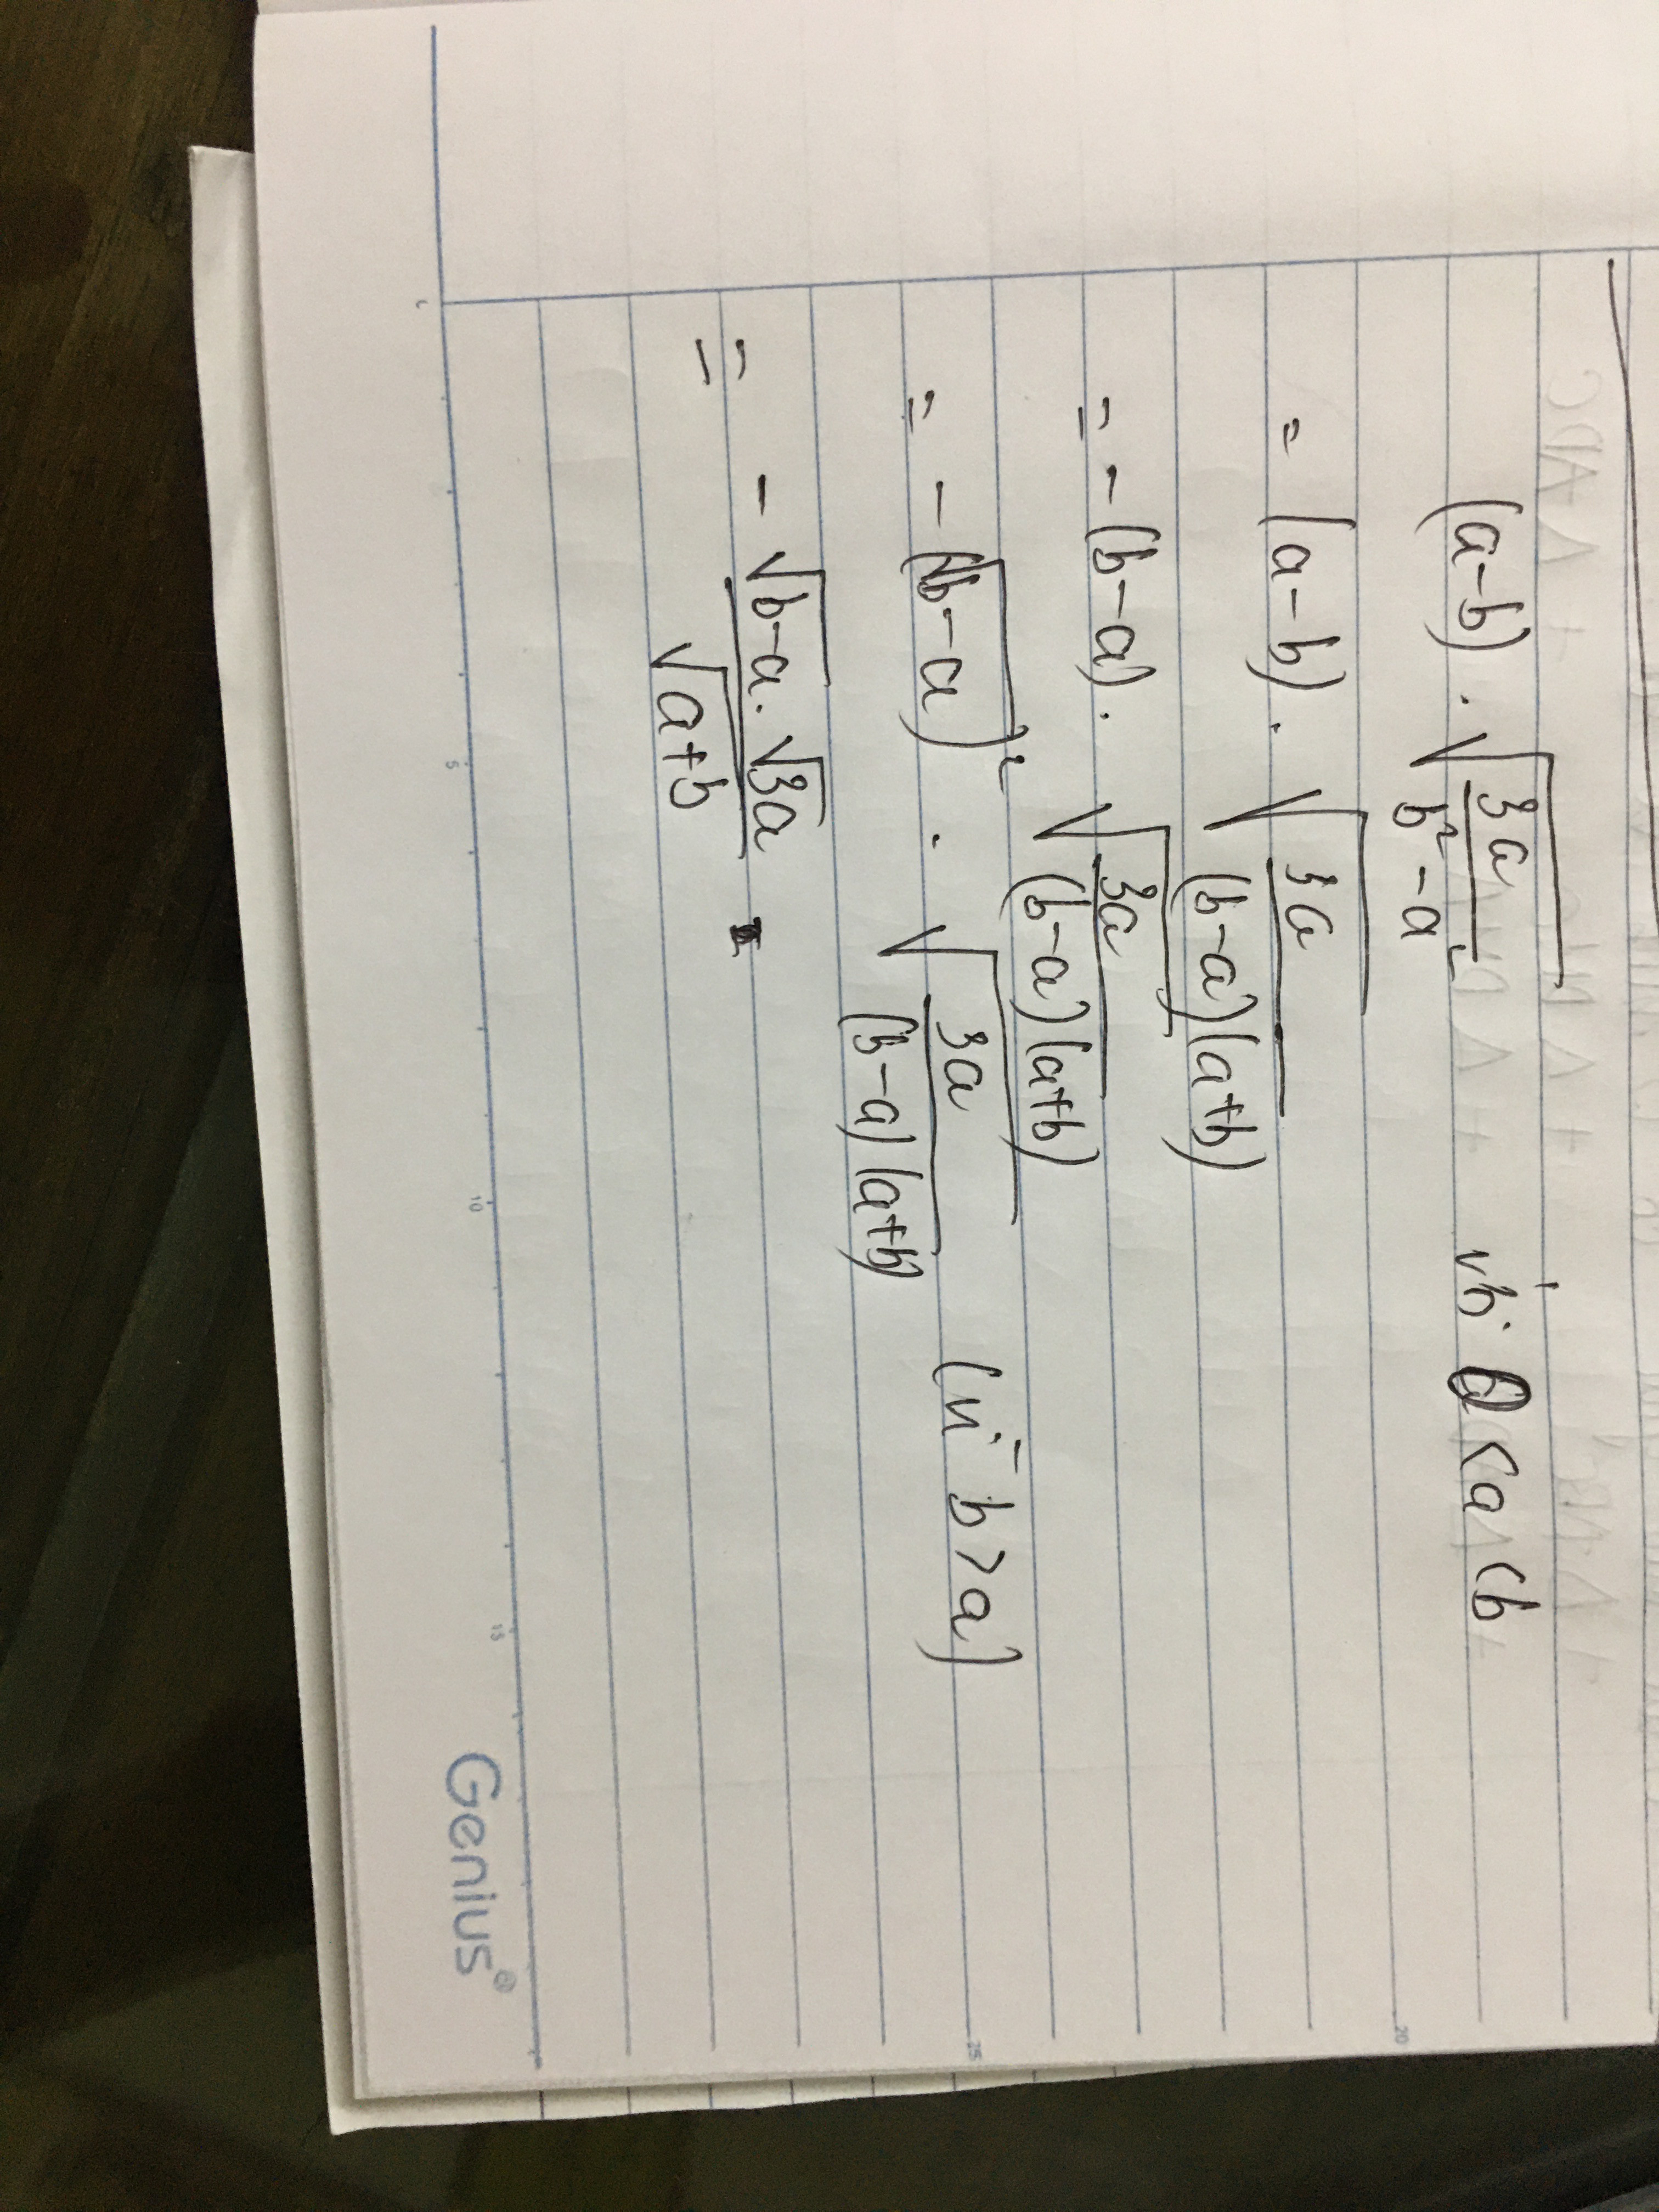 (a-b) . √(3a / (b² - a²)) với 0 < a < b
= (a-b) . √(3a / ((b-a)(a+b)))
= - (b-a) . √(3a / ((b-a)(a+b)))
= - (√(b-a))² . √(3a / ((b-a)(a+b))) (vì b > a)
= - (√(b-a) . √(3a)) / √(a+b)
5
10
15
20
25
Genius®